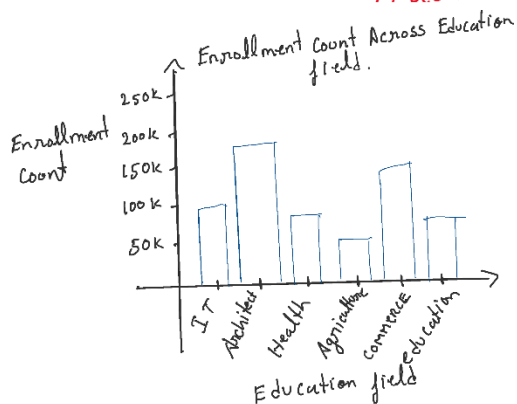 Enrollment Count Across Education
field.
Enrollment
Count
250k
200k
150k
100k
50k
IT
Architect
Health
Agriculture
COMMERCE
education
Education field